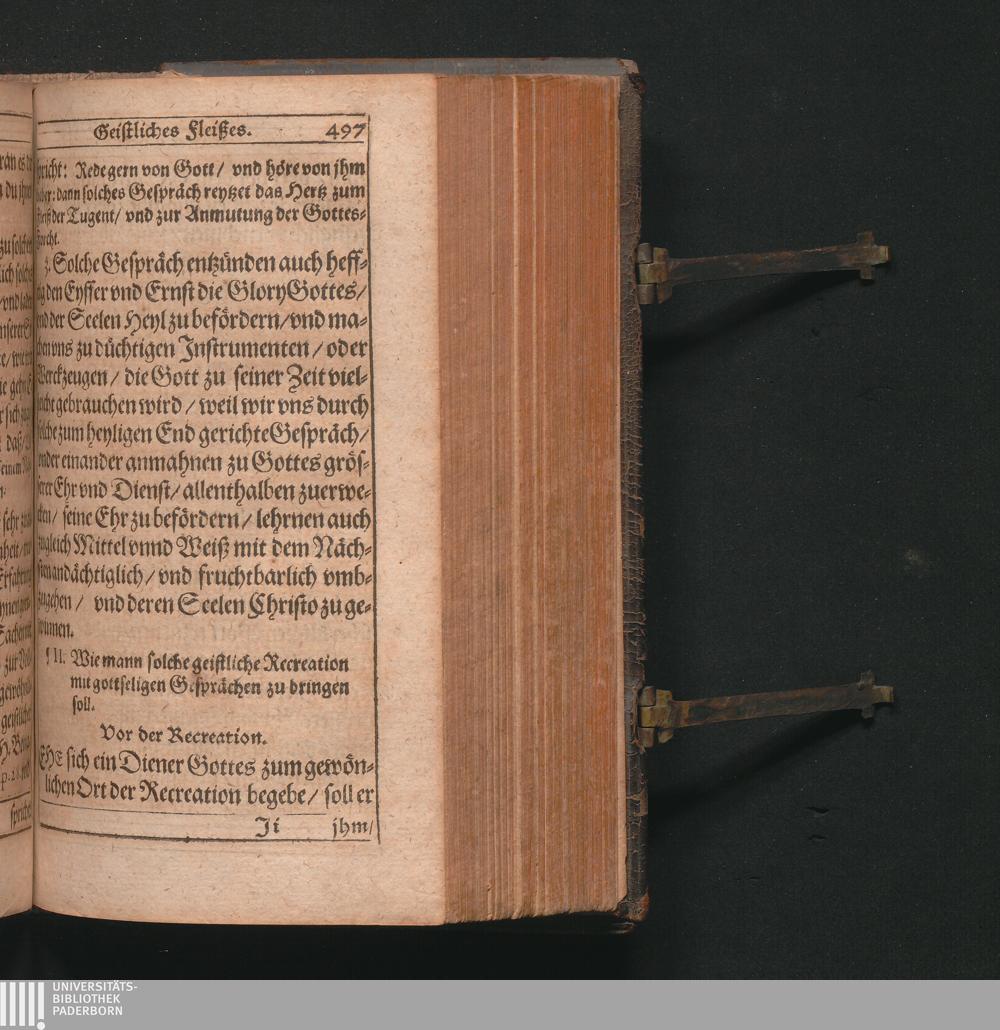 Geistliches Fleißes. 497
spricht: Rede gern von Gott/ vnd höre von jhm
lieber: dann solches Gespräch reytzet das Hertz zum
Fleiß der Tugent/ vnd zur Anmutung der Gottes-
forcht.
3. Solche Gespräch entzünden auch heff-
tig den Eyffer vnd Ernst die Glory Gottes/
vnd der Seelen Heyl zu befördern/ vnd ma-
chen vns zu düchtigen Instrumenten/ oder
Werckzeugen/ die Gott zu seiner Zeit viel-
leicht gebrauchen wird/ weil wir vns durch
solche zum heyligen End gerichte Gespräch/
vnder einander anmahnen zu Gottes grös-
serer Ehr vnd Dienst/ allenthalben zuerwe-
cken/ seine Ehr zu befördern/ lehrnen auch
zugleich Mittel vnnd Weiß mit dem Näch-
sten andächtiglich/ vnd fruchtbarlich vmb-
zugehen/ vnd deren Seelen Christo zu ge-
winnen.
§ II. Wie mann solche geistliche Recreation
mit gottseligen Gesprächen zu bringen
soll.
Vor der Recreation.
EHE sich ein Diener Gottes zum gewön-
lichen Ort der Recreation begebe/ soll er
Ji jhm/
UNIVERSITÄTS-
BIBLIOTHEK
PADERBORN